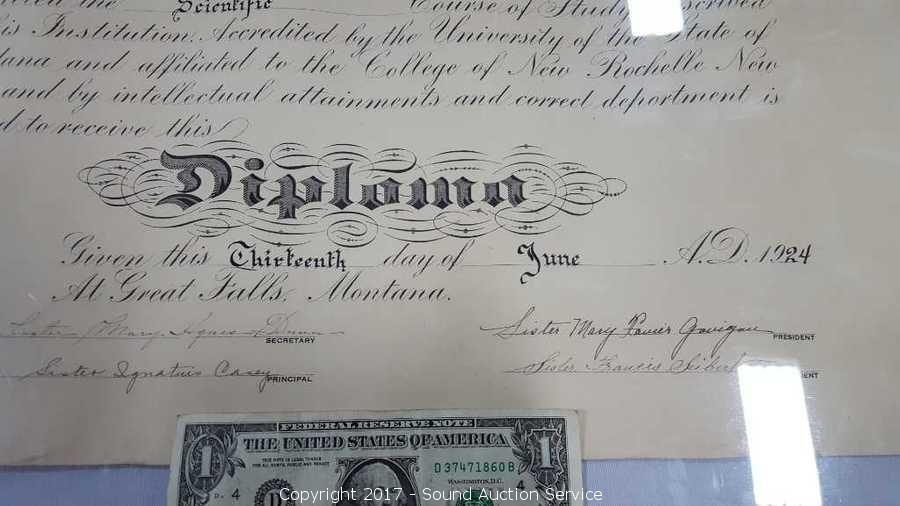 the Scientific Course of Study
is Institution. Accredited by the University of the State of
tana and affiliated to the College of New Rochelle New
and by intellectual attainments and correct deportment is
d to receive this
Diploma
Given this Thirteenth day of June A.D. 1924
At Great Falls, Montana.
Sister Mary Agnes Dunn SECRETARY
Sister Mary Xavier Gavigan PRESIDENT
Sister Ignatius Casey PRINCIPAL
Sister Francis Seibert ENT
FEDERAL RESERVE NOTE
THE UNITED STATES OF AMERICA
1 1
THIS NOTE IS LEGAL TENDER
FOR ALL DEBTS, PUBLIC AND PRIVATE
D 37471860 B
WASHINGTON, D.C.
4 D 4
Copyright 2017 - Sound Auction Service